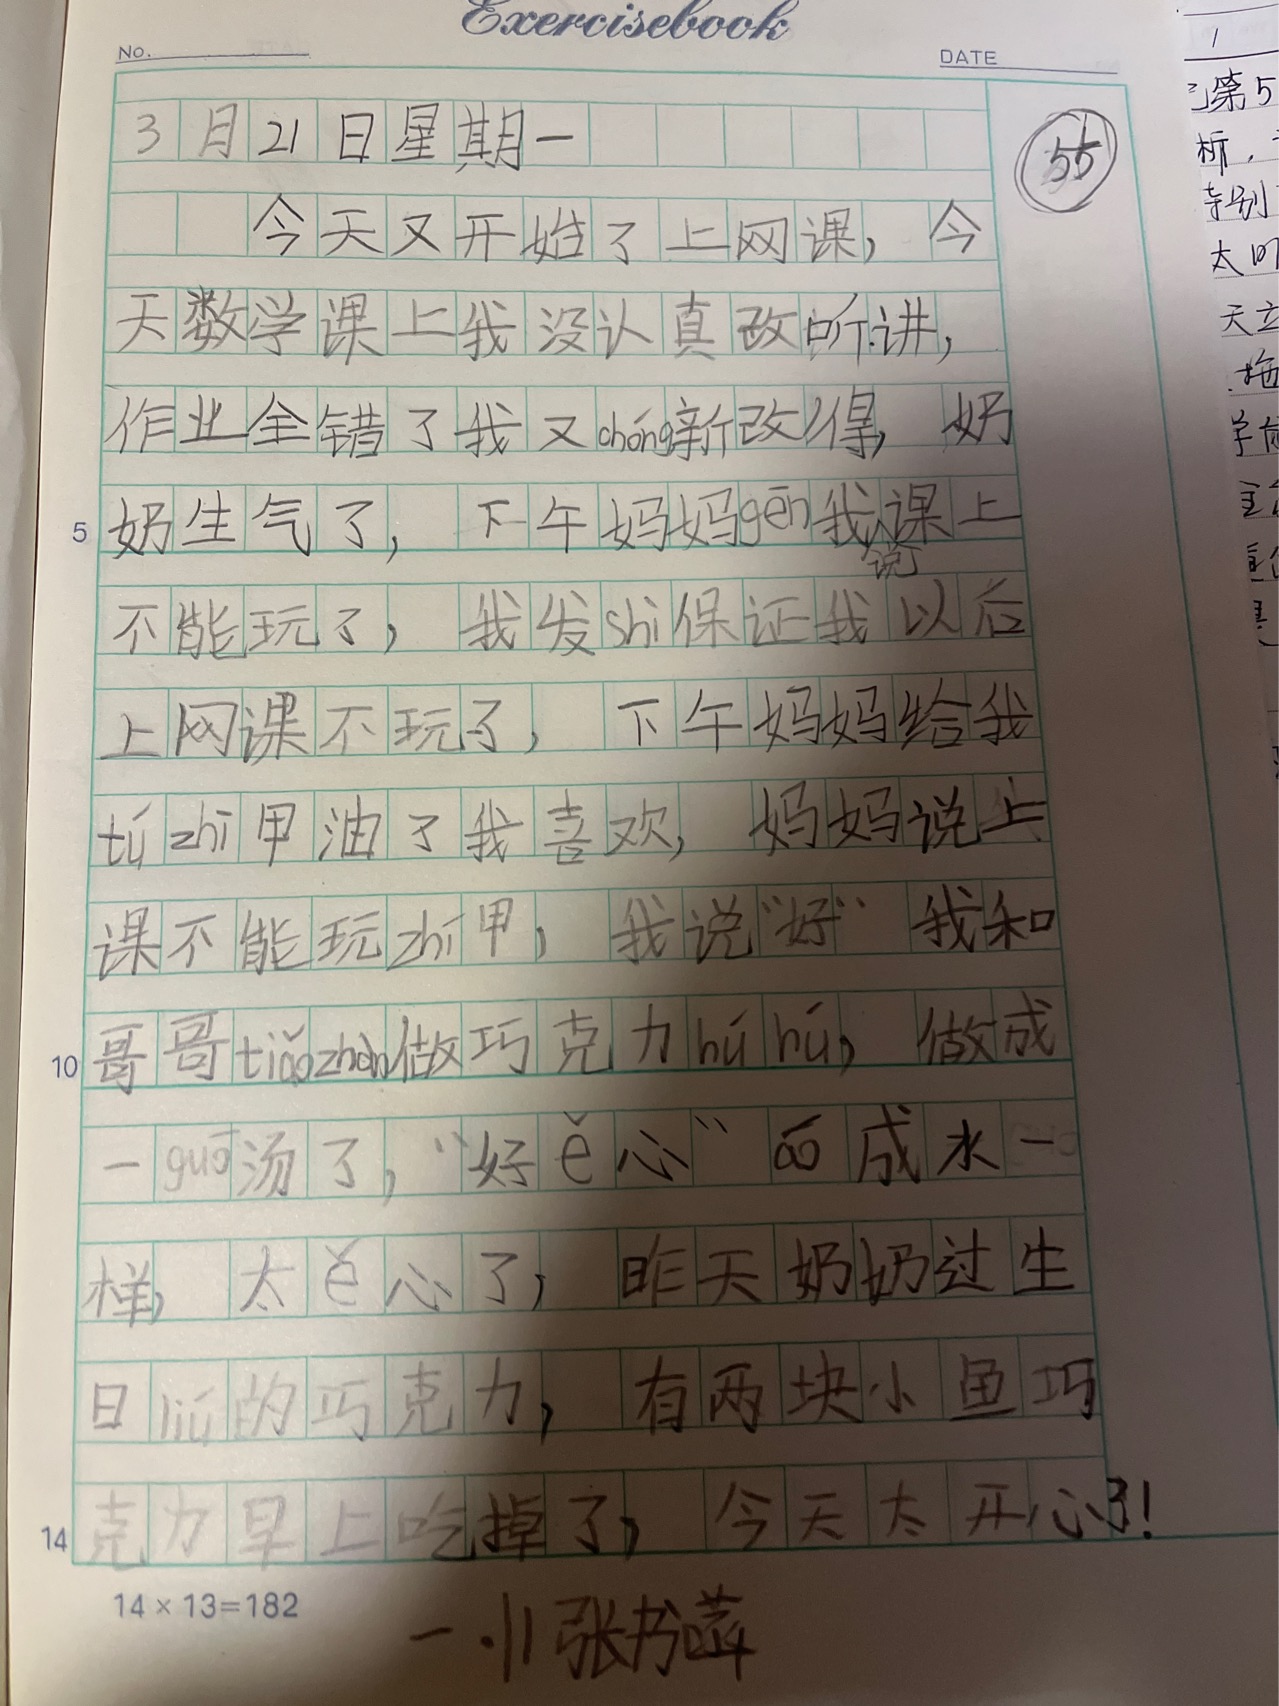 Exercisebook
NO.
DATE
3月21日星期一
55
今天又开始了上网课，今
天数学课上我没认真改听讲，
作业全错了我又chóng新改得，奶
奶生气了，下午妈妈gēn我课上
说
不能玩了，我发shì保证我以后
上网课不玩了，下午妈妈给我
tú zhī甲油了我喜欢，妈妈说上
课不能玩zhī甲，我说“好”我和
5
哥哥tiǎozhàn做巧克力hú hú，做成
10
一guō汤了，“好ě心”áo成水一
样，太ě心了，昨天奶奶过生
日liú的巧克力，有两块小鱼巧
克力早上吃掉了，今天太开心了！
14
14×13=182
一.11张书
第5
析，
特别
太明
天立